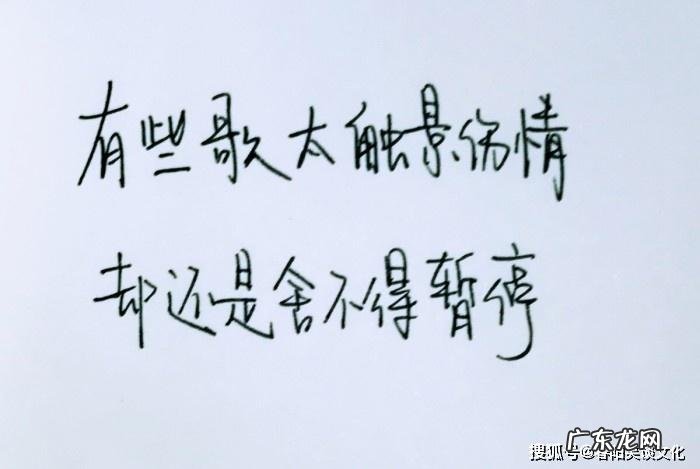 有些歌太触景伤情
却还是舍不得暂停
广东龙网
搜狐号@春阳美谈文化